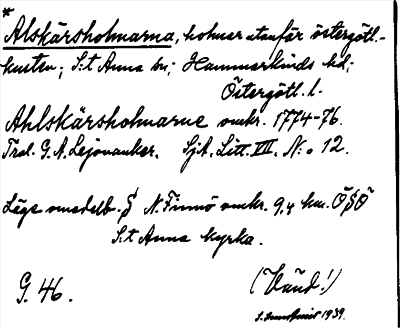 *
Alskärsholmarna, holmar utanför östergötl.-
kusten; S:t Anna sn; Hammarkinds hd;
Östergötl. l.
Ahlskärsholmarne omkr. 1774-76.
Trol. G. A. Lejonanker. Sjk. Litt. VII. N:o 12.
Läge omedelb. S N. Finnö omkr. 9,4 km. ÖSÖ
S:t Anna kyrka.
G. 46.
(Vänd!)
1939.